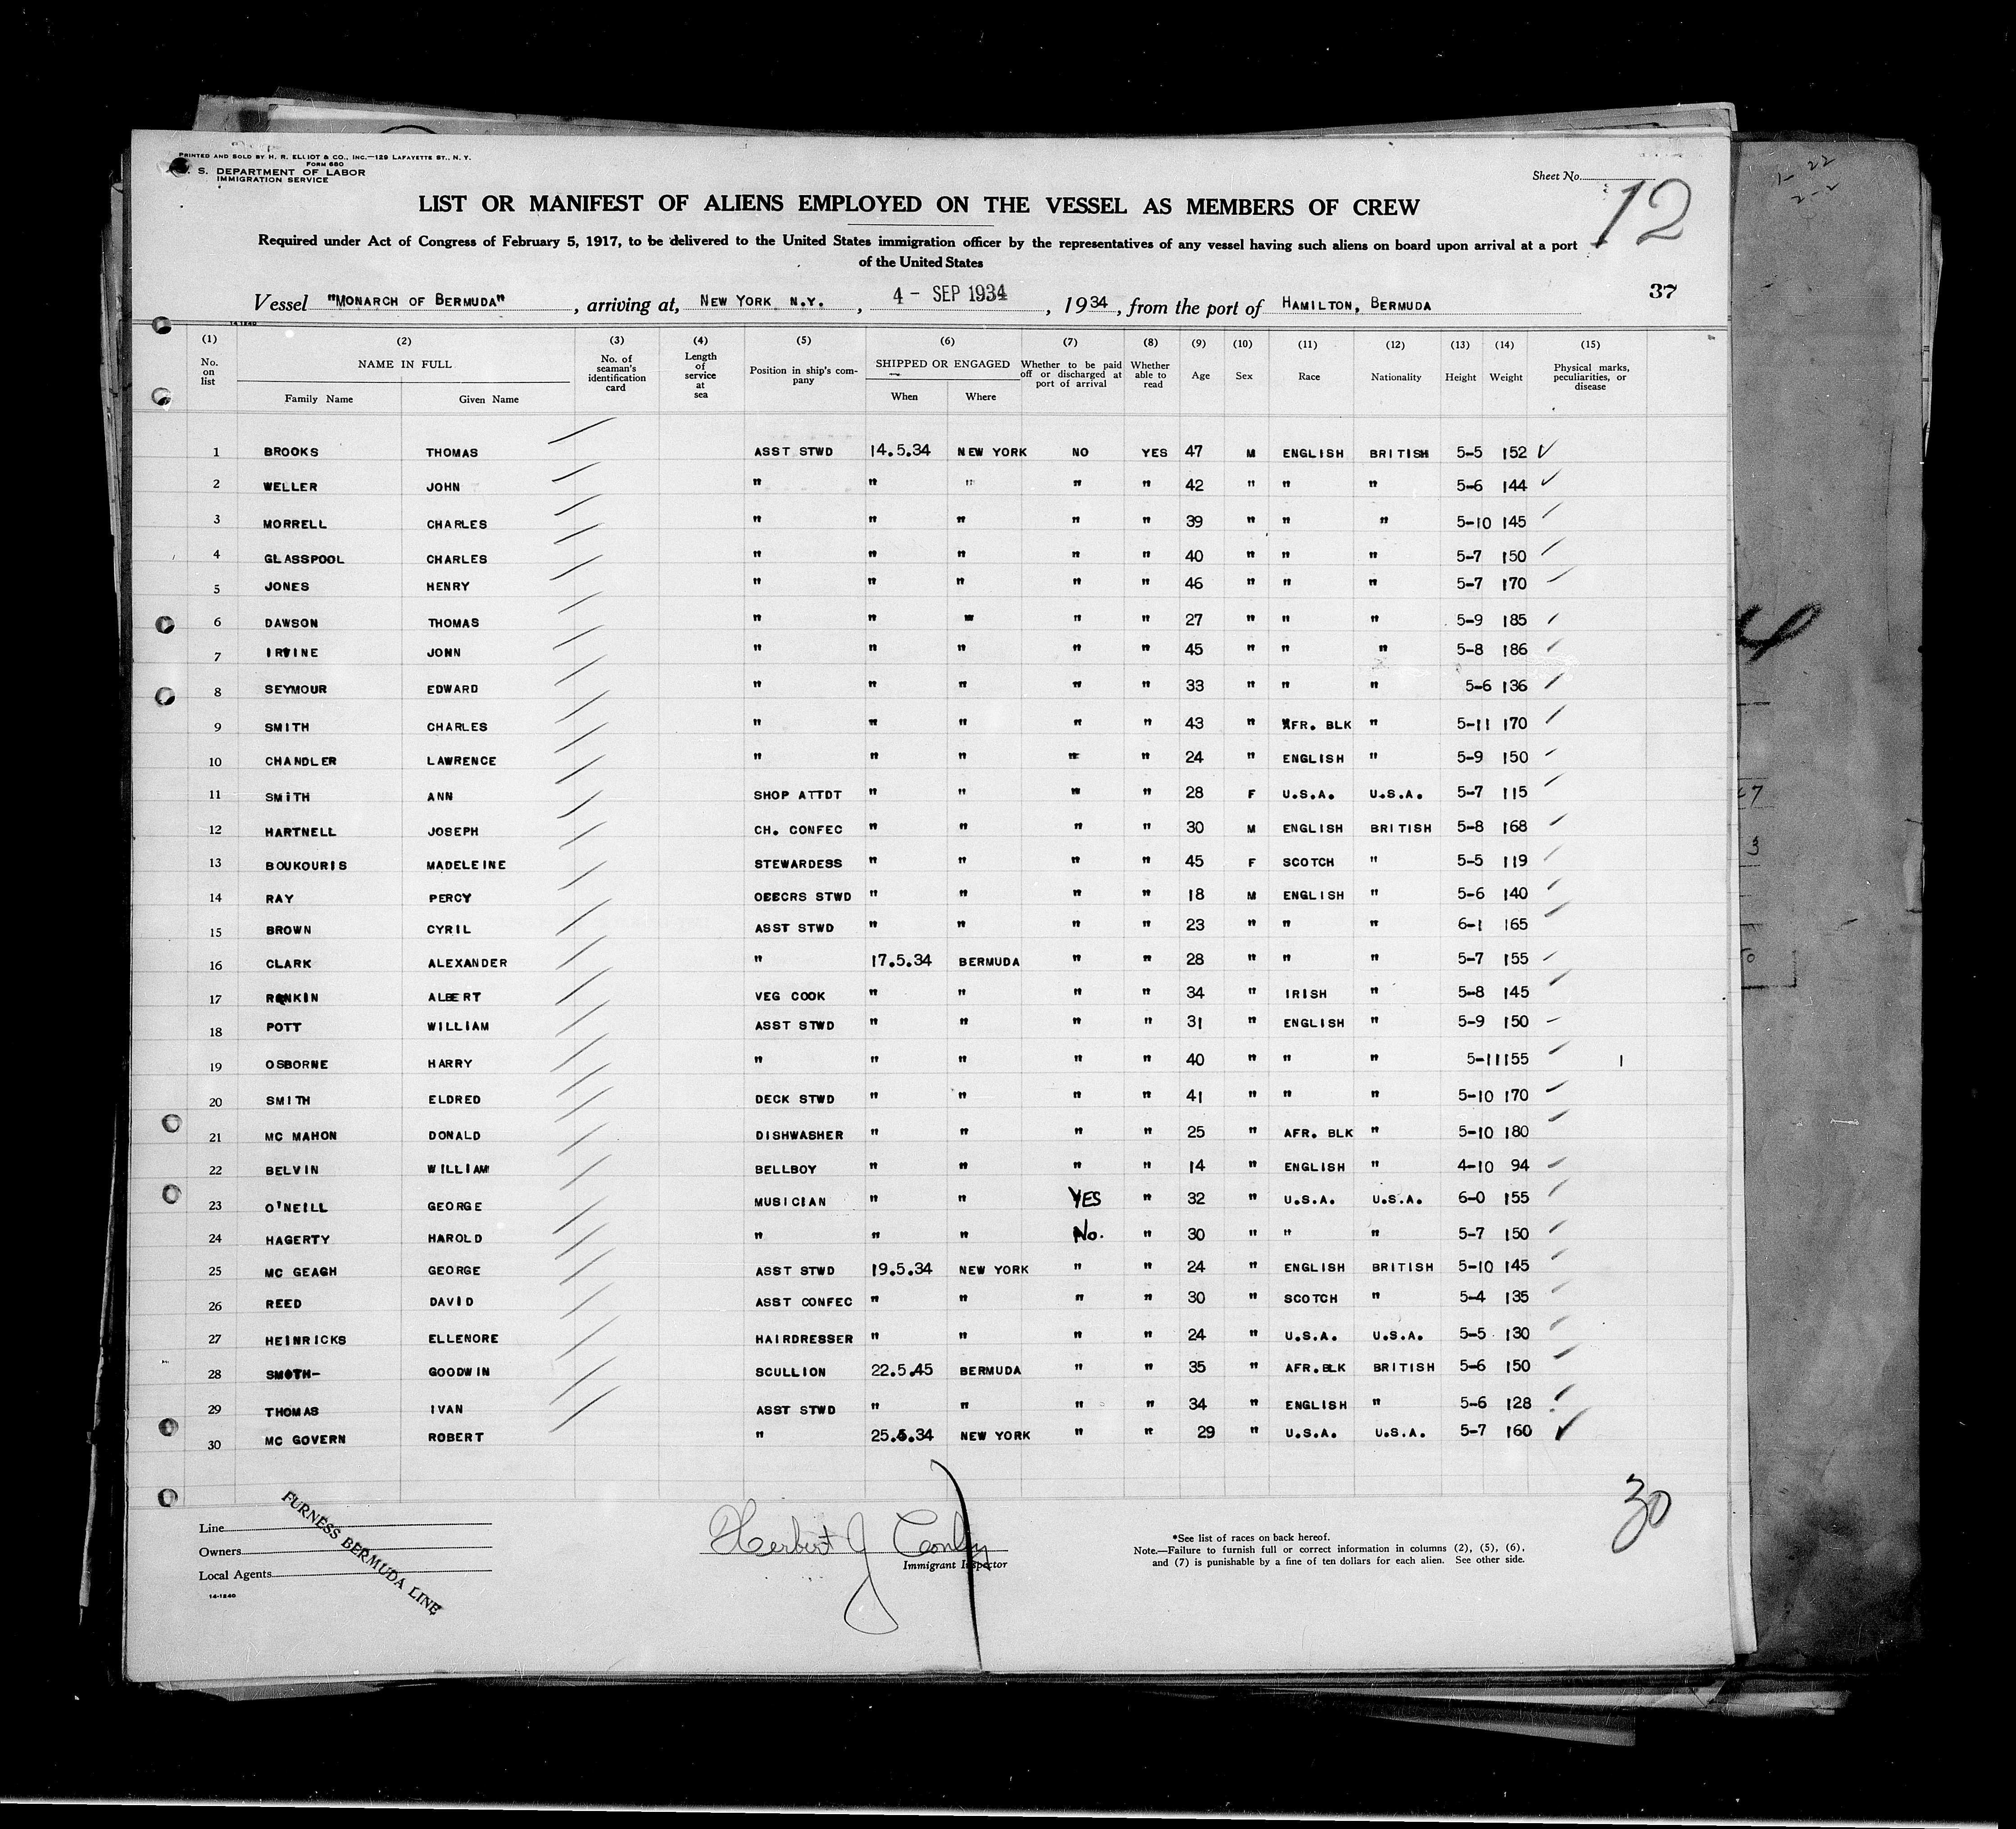 PRINTED AND SOLD BY H. R. ELLIOT & CO., INC.—129 LAFAYETTE ST., N. Y.
FORM 680
S. DEPARTMENT OF LABOR
IMMIGRATION SERVICE
Sheet No.
12
LIST OR MANIFEST OF ALIENS EMPLOYED ON THE VESSEL AS MEMBERS OF CREW
Required under Act of Congress of February 5, 1917, to be delivered to the United States immigration officer by the representatives of any vessel having such aliens on board upon arrival at a port
of the United States
37
Vessel "MONARCH OF BERMUDA", arriving at, NEW YORK N.Y., 4 - SEP 1934, 1934, from the port of HAMILTON, BERMUDA
14-1240
(1) (2) (3) (4) (5) (6) (7) (8) (9) (10) (11) (12) (13) (14) (15)
No. on list NAME IN FULL No. of seaman's identification card Length of service at sea Position in ship's company SHIPPED OR ENGAGED Whether to be paid off or discharged at port of arrival Whether able to read Age Sex Race Nationality Height Weight Physical marks, peculiarities, or disease
Family Name Given Name When Where
1 BROOKS THOMAS ASST STWD 14.5.34 NEW YORK NO YES 47 M ENGLISH BRITISH 5-5 152
2 WELLER JOHN " " " " " 42 " " " 5-6 144
3 MORRELL CHARLES " " " " " 39 " " " 5-10 145
4 GLASSPOOL CHARLES " " " " " 40 " " " 5-7 150
5 JONES HENRY " " " " " 46 " " " 5-7 170
6 DAWSON THOMAS " " " " " 27 " " " 5-9 185
7 IRVINE JONN " " " " " 45 " " " 5-8 186
8 SEYMOUR EDWARD " " " " " 33 " " " 5-6 136
9 SMITH CHARLES " " " " " 43 " AFR. BLK " 5-11 170
10 CHANDLER LAWRENCE " " " " " 24 " ENGLISH " 5-9 150
11 SMITH ANN SHOP ATTDT " " " " 28 F U.S.A. U.S.A. 5-7 115
12 HARTNELL JOSEPH CH. CONFEC " " " " 30 M ENGLISH BRITISH 5-8 168
13 BOUKOURIS MADELEINE STEWARDESS " " " " 45 F SCOTCH " 5-5 119
14 RAY PERCY OEECRS STWD " " " " 18 M ENGLISH " 5-6 140
15 BROWN CYRIL ASST STWD " " " " 23 " " " 6-1 165
16 CLARK ALEXANDER " 17.5.34 BERMUDA " " 28 " " " 5-7 155
17 RANKIN ALBERT VEG COOK " " " " 34 " IRISH " 5-8 145
18 POTT WILLIAM ASST STWD " " " " 31 " ENGLISH " 5-9 150
19 OSBORNE HARRY " " " " " 40 " " " 5-11 155
20 SMITH ELDRED DECK STWD " " " " 41 " " " 5-10 170
21 MC MAHON DONALD DISHWASHER " " " " 25 " AFR. BLK " 5-10 180
22 BELVIN WILLIAM BELLBOY " " " " 14 " ENGLISH " 4-10 94
23 O'NEILL GEORGE MUSICIAN " " YES " 32 " U.S.A. U.S.A. 6-0 155
24 HAGERTY HAROLD " " " No. " 30 " " " 5-7 150
25 MC GEAGH GEORGE ASST STWD 19.5.34 NEW YORK " " 24 " ENGLISH BRITISH 5-10 145
26 REED DAVID ASST CONFEC " " " " 30 " SCOTCH " 5-4 135
27 HEINRICKS ELLENORE HAIRDRESSER " " " " 24 " U.S.A. U.S.A. 5-5 130
28 SMOTH- GOODWIN SCULLION 22.5.45 BERMUDA " " 35 " AFR.BLK BRITISH 5-6 150
29 THOMAS IVAN ASST STWD " " " " 34 " ENGLISH " 5-6 128
30 MC GOVERN ROBERT " 25.5.34 NEW YORK " " 29 " U.S.A. U.S.A. 5-7 160
30
Line
Owners
Local Agents
FURNESS BERMUDA LINE
14-1240
Herbert J Conley
Immigrant Inspector
*See list of races on back hereof.
Note.—Failure to furnish full or correct information in columns (2), (5), (6),
and (7) is punishable by a fine of ten dollars for each alien. See other side.